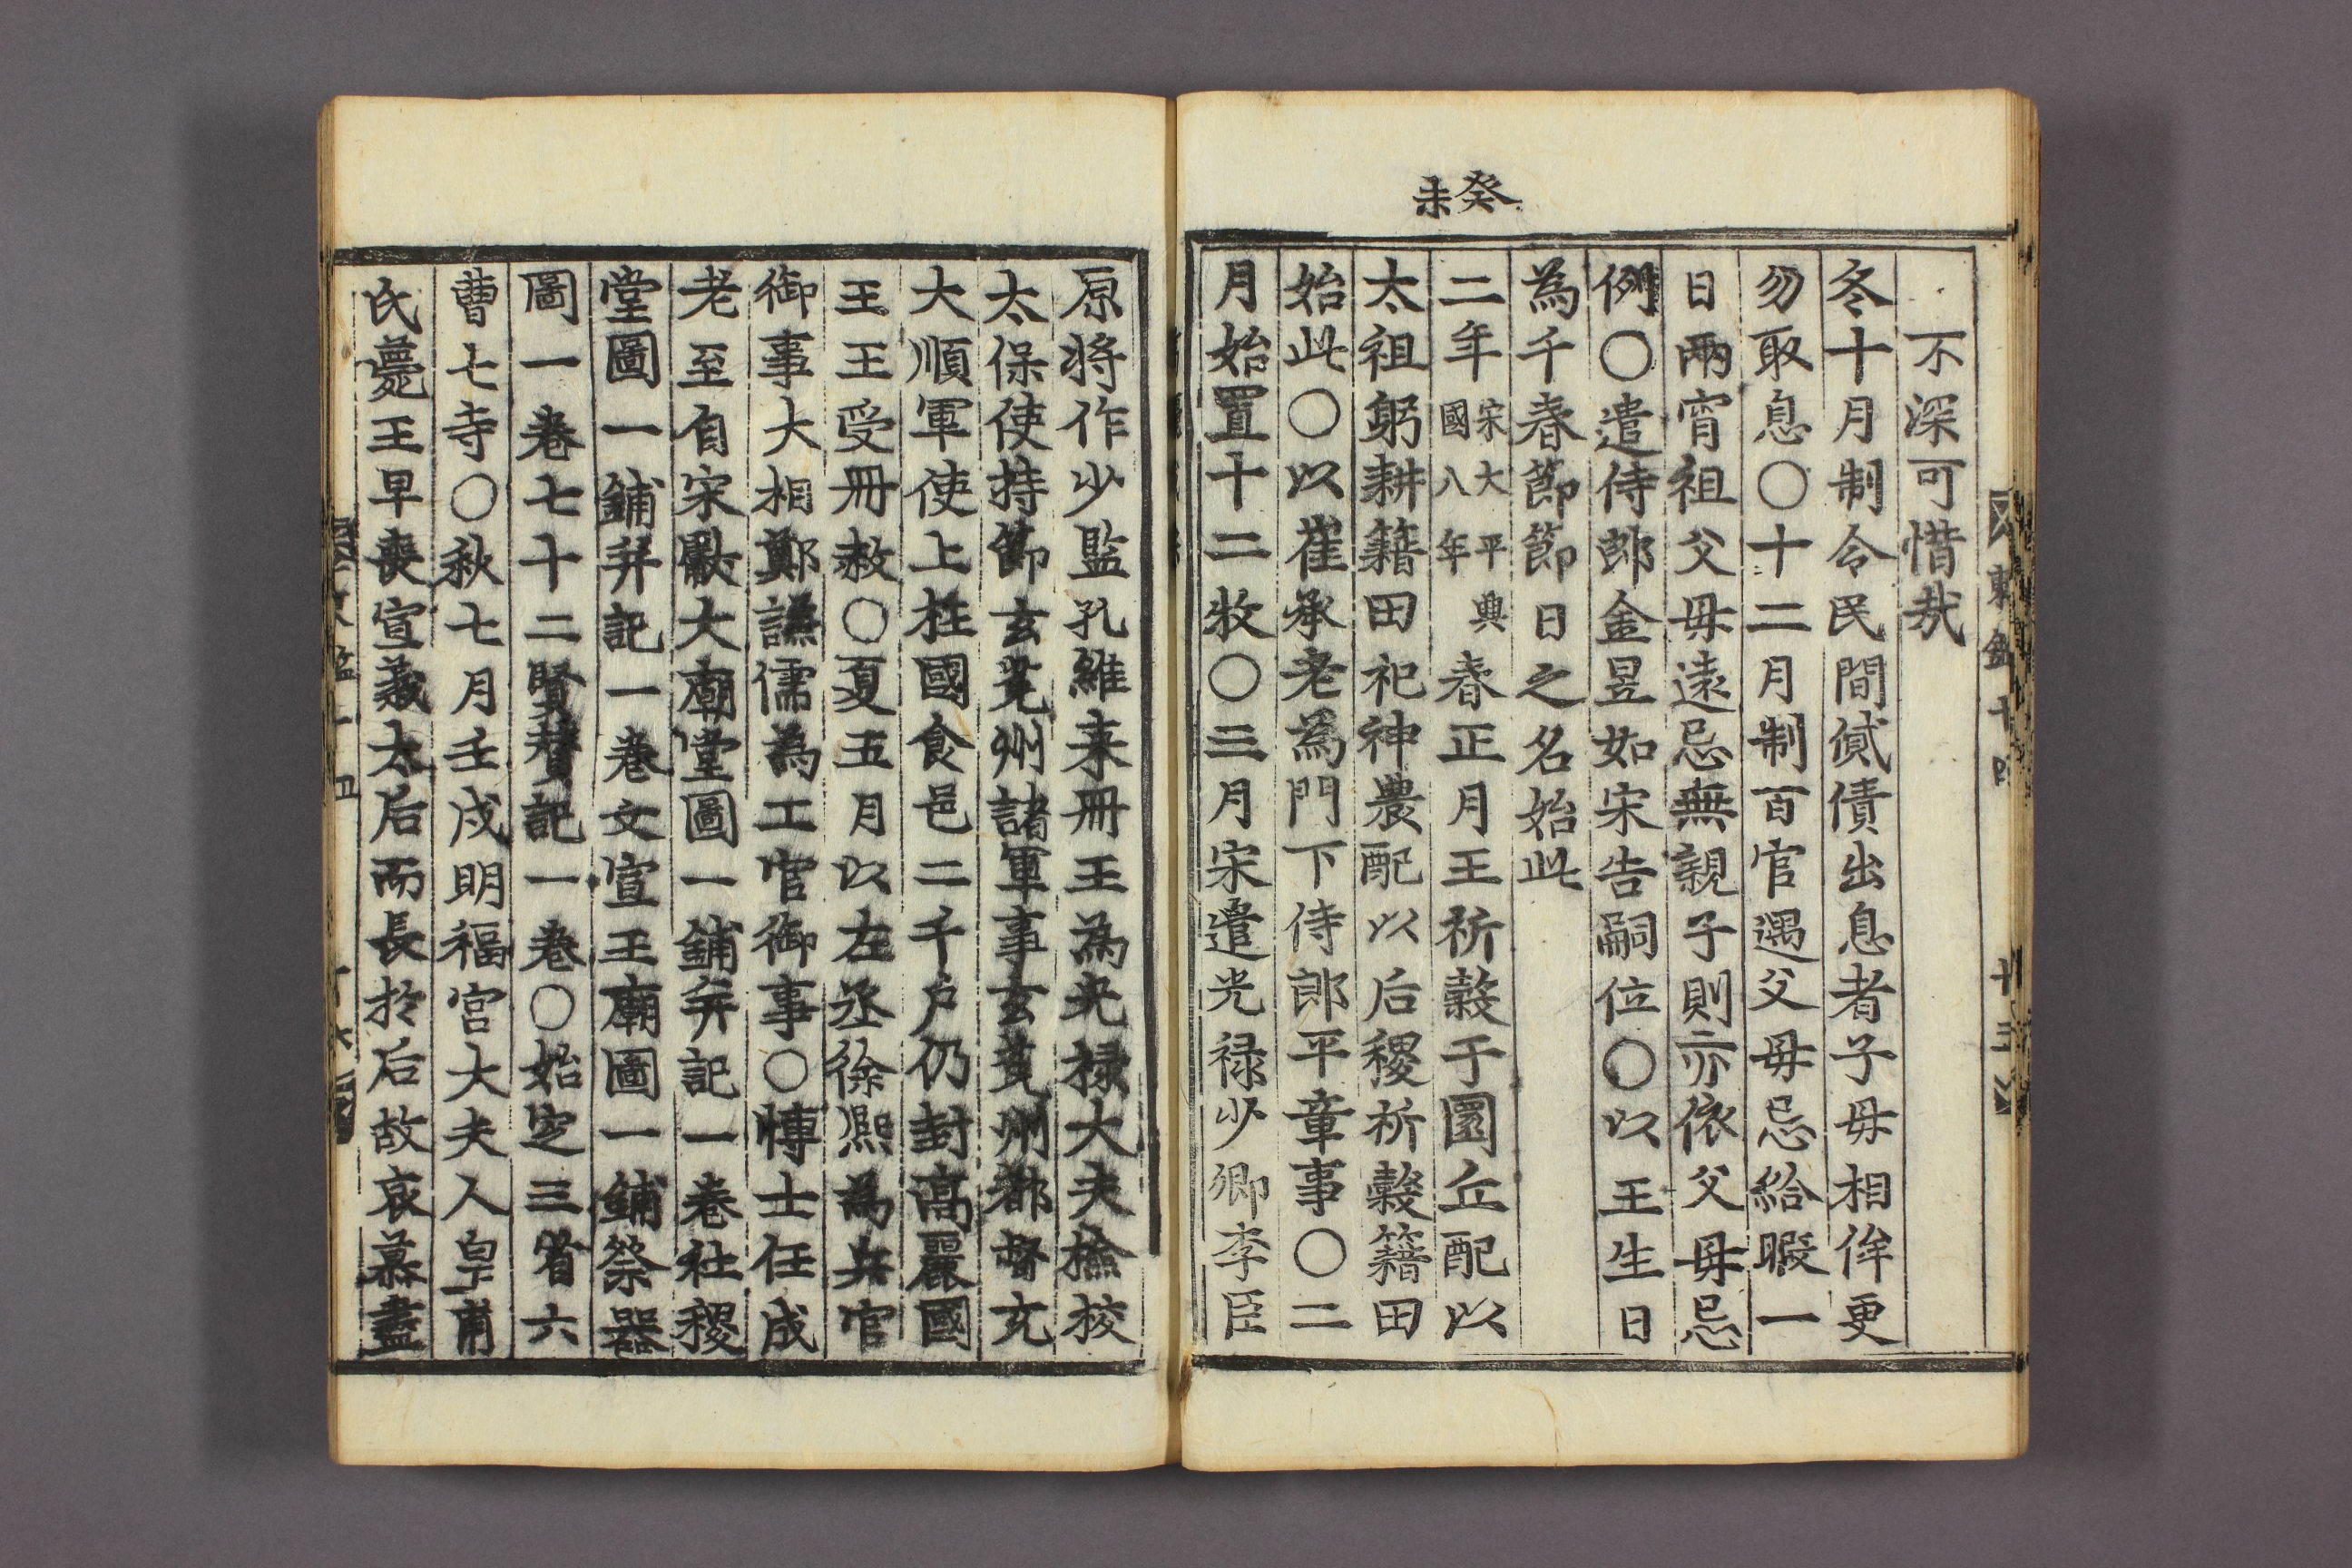 癸未
不深可惜哉
冬十月制令民間貸債出息者子母相侔更
勿取息〇十二月制百官遇父母忌給暇一
日兩宵祖父母遠忌無親子則亦依父母忌
例〇遣侍郎金昱如宋告嗣位〇以王生日
為千春節節日之名始此
二年宋大平興國八年春正月王祈穀于圜丘配以
太祖躬耕籍田祀神農配以后稷祈穀籍田
始此〇以崔承老為門下侍郎平章事〇二
月始置十二牧〇三月宋遣光禄少卿李臣
原將作少監孔維来冊王為光禄大夫撿校
太保使持節玄菟州諸軍事玄菟州都督充
大順軍使上柱國食邑二千户仍封高麗國
王王受冊赦〇夏五月以左丞徐熙為兵官
御事大相鄭謙儒為工官御事〇博士任成
老至自宋獻大廟堂圖一鋪并記一卷社稷
堂圖一鋪并記一卷文宣王廟圖一鋪祭器
圖一卷七十二賢贊記一卷〇始定三省六
曹七寺〇秋七月壬戌明福宮大夫人皇甫
氏薨王早喪宣義太后而長於后故哀慕盡